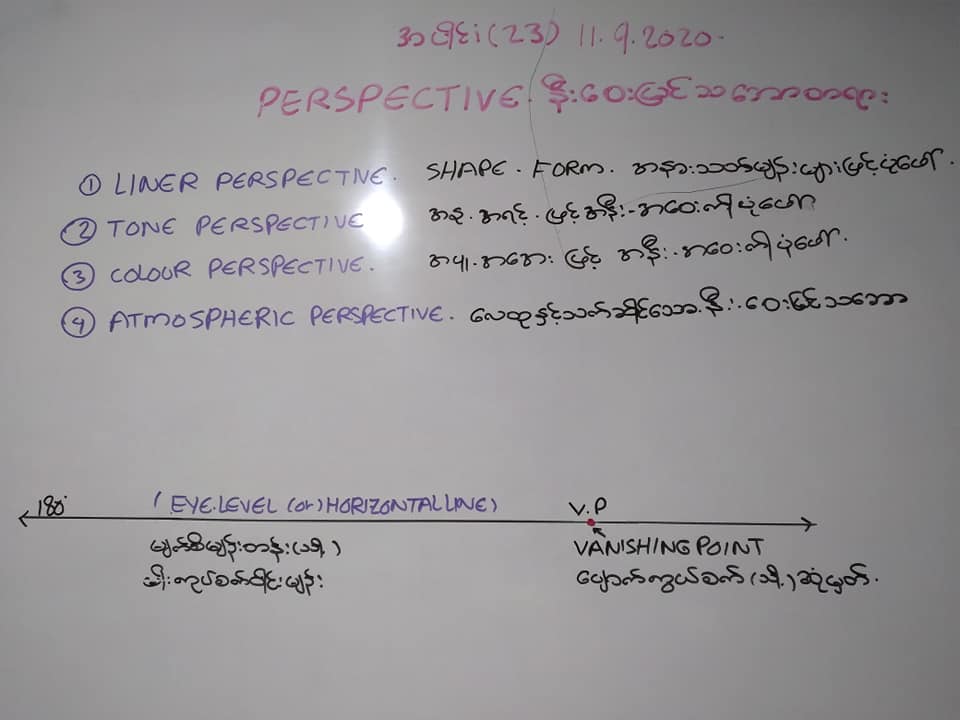 အပိုင်း(23) 11.9.2020.
PERSPECTIVE. နီးဝေးမြင်သဘောတရား
① LINER PERSPECTIVE. SHAPE. FORM. အနားသတ်မျဉ်းများဖြင့်ပုံဖော်.
② TONE PERSPECTIVE အနု.အရင့်.ဖြင့်အနီး-အဝေးကိုပုံဖော်
③ COLOUR PERSPECTIVE. အပျ.အစား ဖြင့် အနီး.အဝေးကိုပုံဖော်.
④ ATMOSPHERIC PERSPECTIVE. လေထုနှင့်သက်ဆိုင်သော.နီး.ဝေးမြင်သဘော
180° (EYE.LEVEL (or) HORIZONTAL LINE) V.P
မျက်စိမျဉ်းတန်း(သို့) VANISHING POINT
မိုးကုပ်စက်ဝိုင်းမျဉ်း ပျောက်ကွယ်စက်(သို့)ဆုံမှတ်.